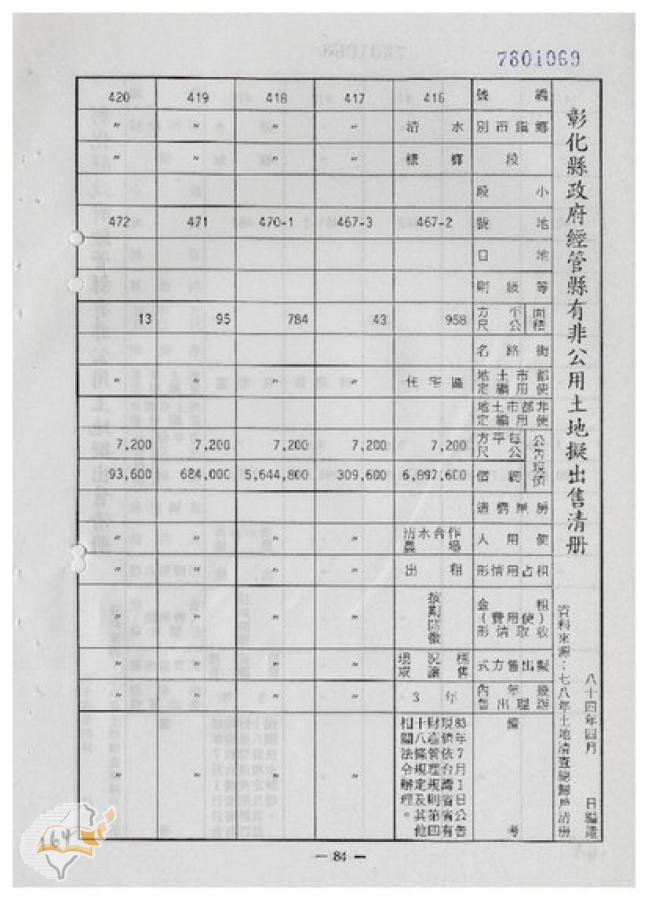 7801069
彰化縣政府經管縣有非公用土地擬出售清冊
八十四年四月 日編造
資料來源：七八年土地清查總歸戶清冊
420 419 418 417 416 號 編
〃 〃 〃 〃 清 水 別市鎮鄉
〃 〃 〃 〃 槺 榔 段
段 小
472 471 470-1 467-3 467-2 號 地
目 地
則 級 等
13 95 784 43 958 方尺 平公 面積
名 路 街
〃 〃 〃 〃 住 宅 區 地土市都定編用使
地土市都非定編用使
7,200 7,200 7,200 7,200 7,200 方平每尺 公 公告現值
93,600 684,000 5,644,800 309,600 6,897,600 價 總
造構屋房
〃 〃 〃 〃 清水合作農 場 人 用 使
〃 〃 〃 〃 出 租 形情用占租
〃 〃 〃 〃 按期 徵 金 租 ( 費用使 ) 形 情取收
〃 〃 〃 〃 現 況 標 讓 售 式方售出擬
〃 〃 〃 〃 3 年 內 年 售出理辦
〃 〃 〃 〃 83年7月1日公告現值依台灣省省有財產管理規則第四十八條規定及其他相關法令辦理。 備 考
164
— 84 —